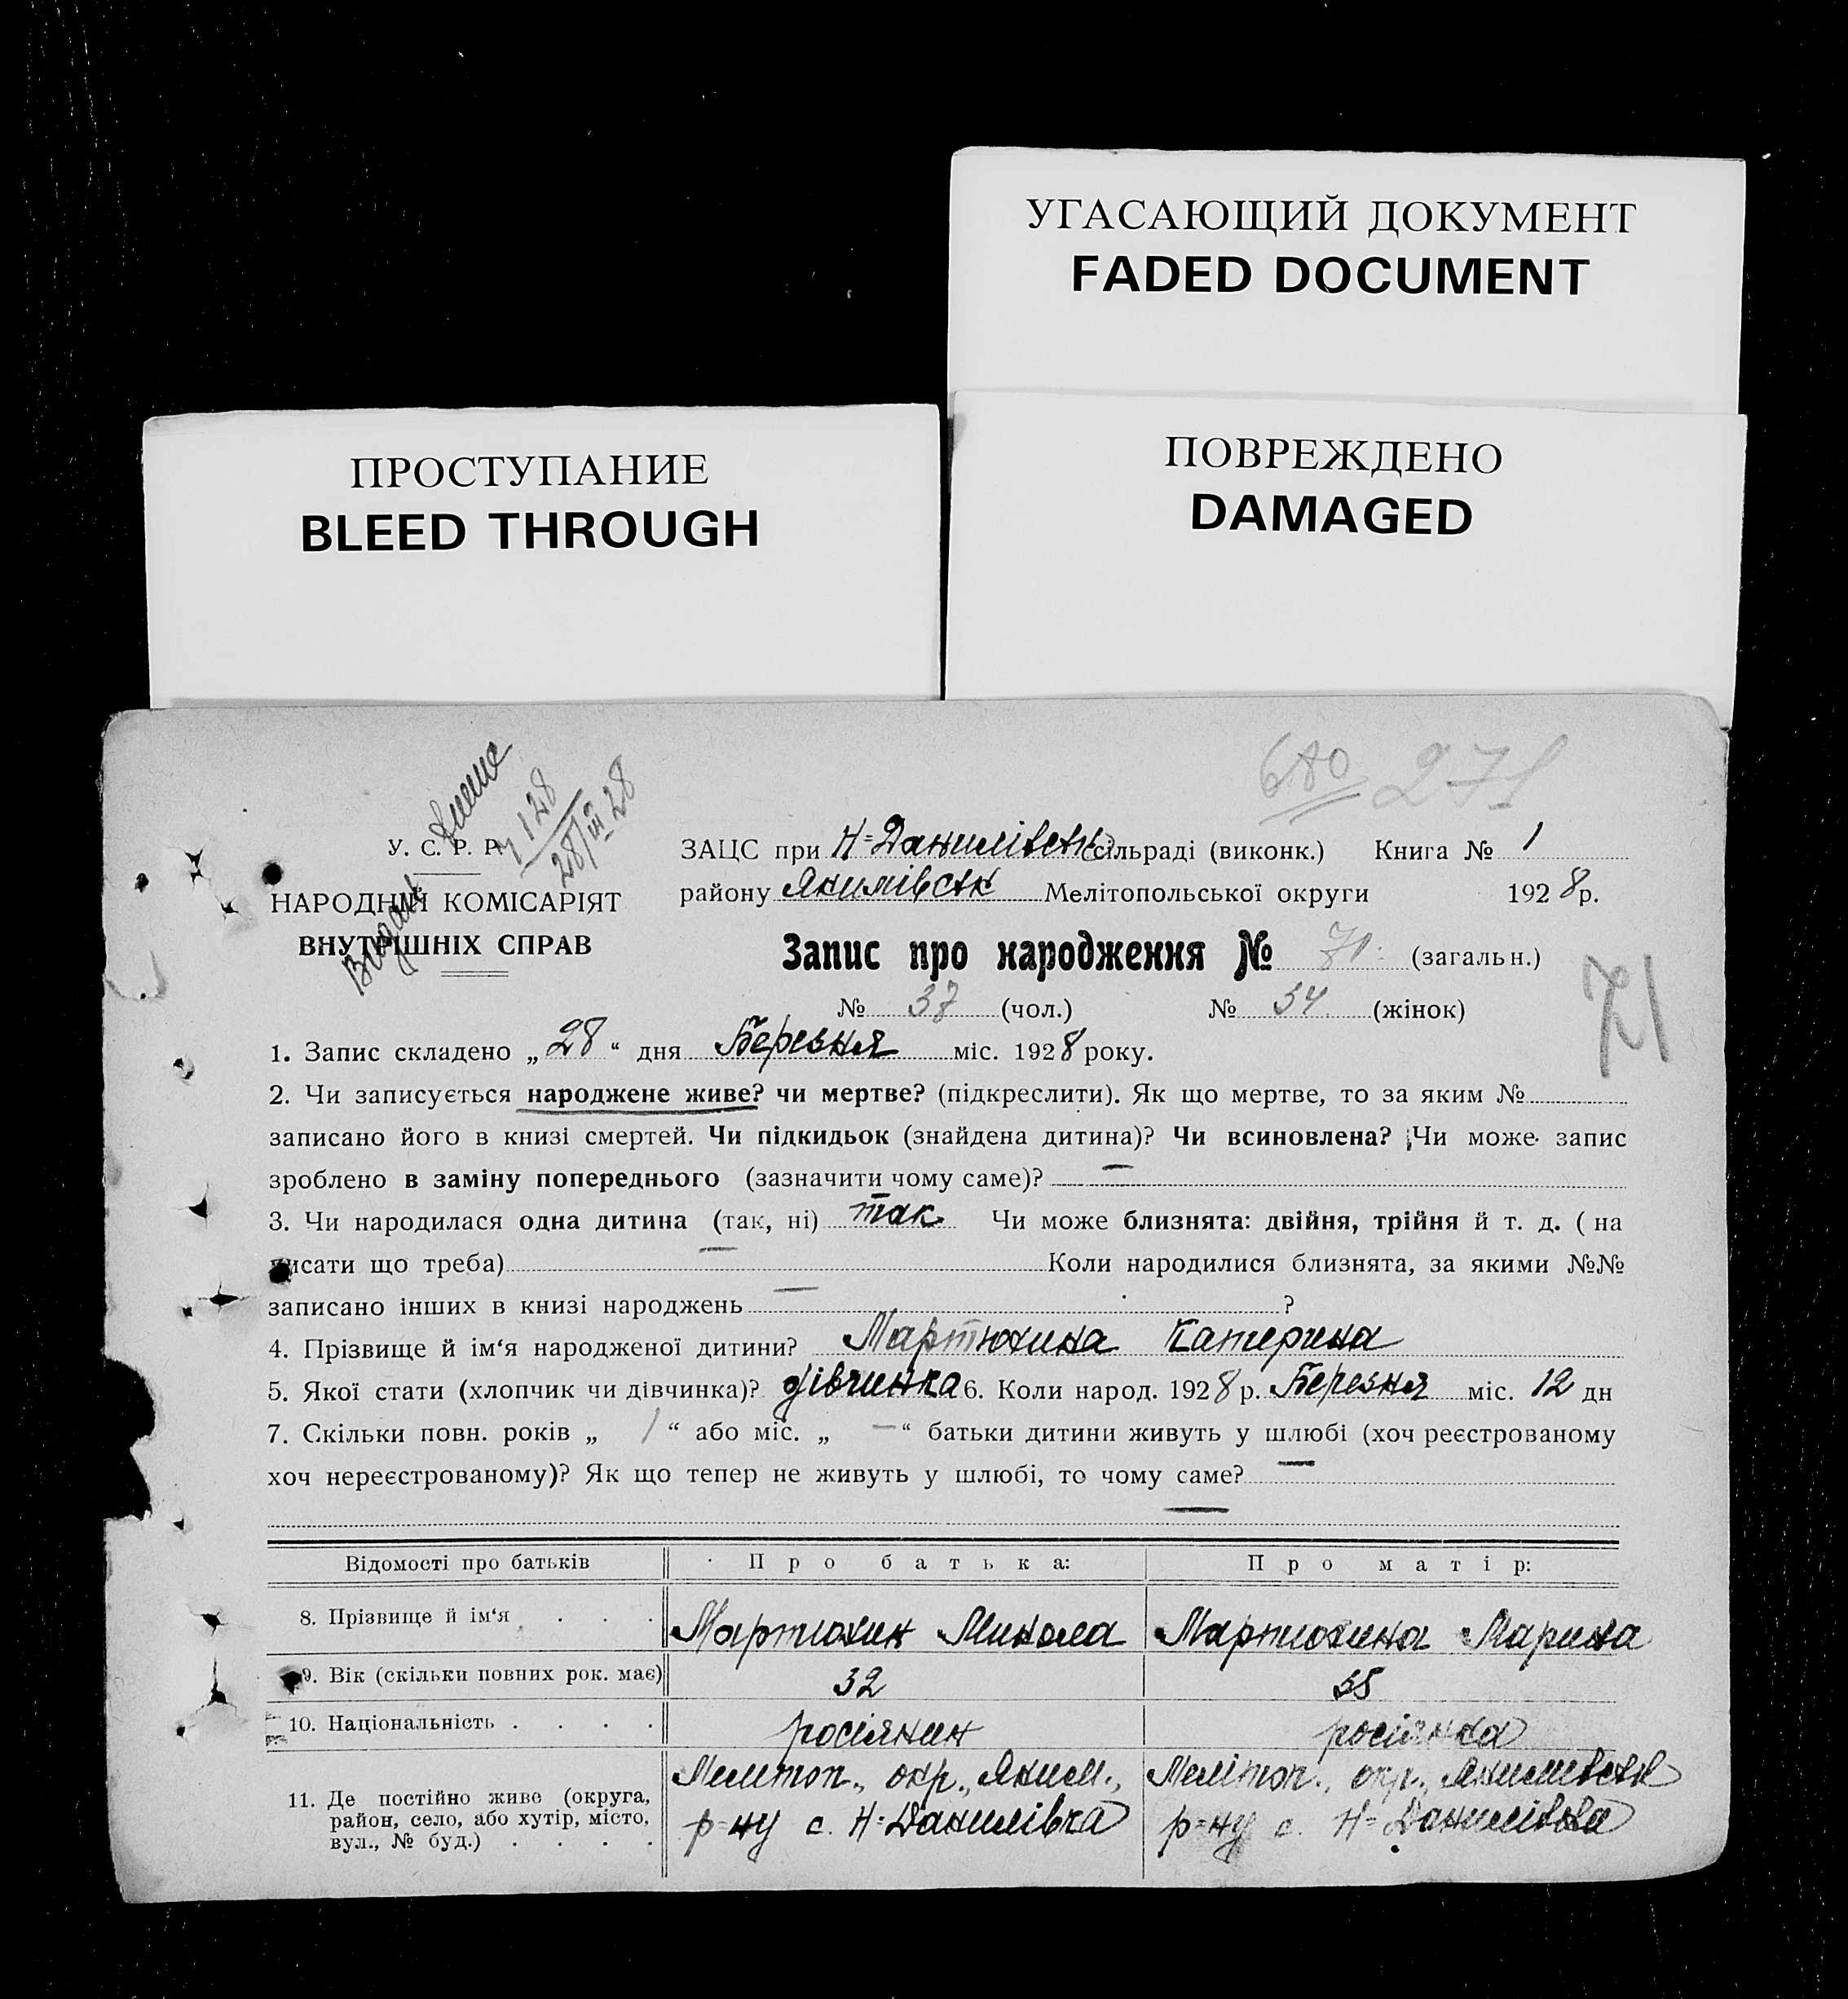 УГАСАЮЩИЙ ДОКУМЕНТ
FADED DOCUMENT
ПРОСТУПАНИЕ
BLEED THROUGH
ПОВРЕЖДЕНО
DAMAGED
271
Видан
28/III 28
У. С. Р. Р.
НАРОДНІЙ КОМІСАРІЯТ
ВНУТРІШНІХ СПРАВ
ЗАЦС при Н-Данилівськ сільраді (виконк.) Книга № 1
району Якимівськ Мелітопольської округи 1928 р.
Запис про народження № 71 (загальн.)
№ 37 (чол.) № 34 (жінок)
71
1. Запис складено „28“ дня Березня міс. 1928 року.
2. Чи записується народжене живе? чи мертве? (підкреслити). Як що мертве, то за яким №
записано його в книзі смертей. Чи підкидьок (знайдена дитина)? Чи всиновлена? Чи може запис
зроблено в заміну попереднього (зазначити чому саме)? —
3. Чи народилася одна дитина (так, ні) так Чи може близнята: двійня, трійня й т. д. ( на
писати що треба) — Коли народилися близнята, за якими №№
записано інших в книзі народжень — ?
4. Прізвище й ім‘я народженої дитини? Мартюхина Катерина
5. Якої стати (хлопчик чи дівчинка)? дівчинка 6. Коли народ. 1928 р. Березня міс. 12 дн
7. Скільки повн. років „ 1 “ або міс. „ — “ батьки дитини живуть у шлюбі (хоч реєстрованому
хоч нереєстрованому)? Як що тепер не живуть у шлюбі, то чому саме? —
—
Відомості про батьків Про батька: Про матір:
8. Прізвище й ім‘я . . . Мартюхин Микола Мартюхина Марина
9. Вік (скільки повних рок. має) 32 35
10. Національність . . . . росіянин росіянка
11. Де постійно живе (округа, район, село, або хутір, місто, вул., № буд.) . . . .
Мелітоп., окр., Яким., р-ну с. Н-Данилівка
Мелітоп., окр., Якимівськ р-ну с. Н-Данилівка